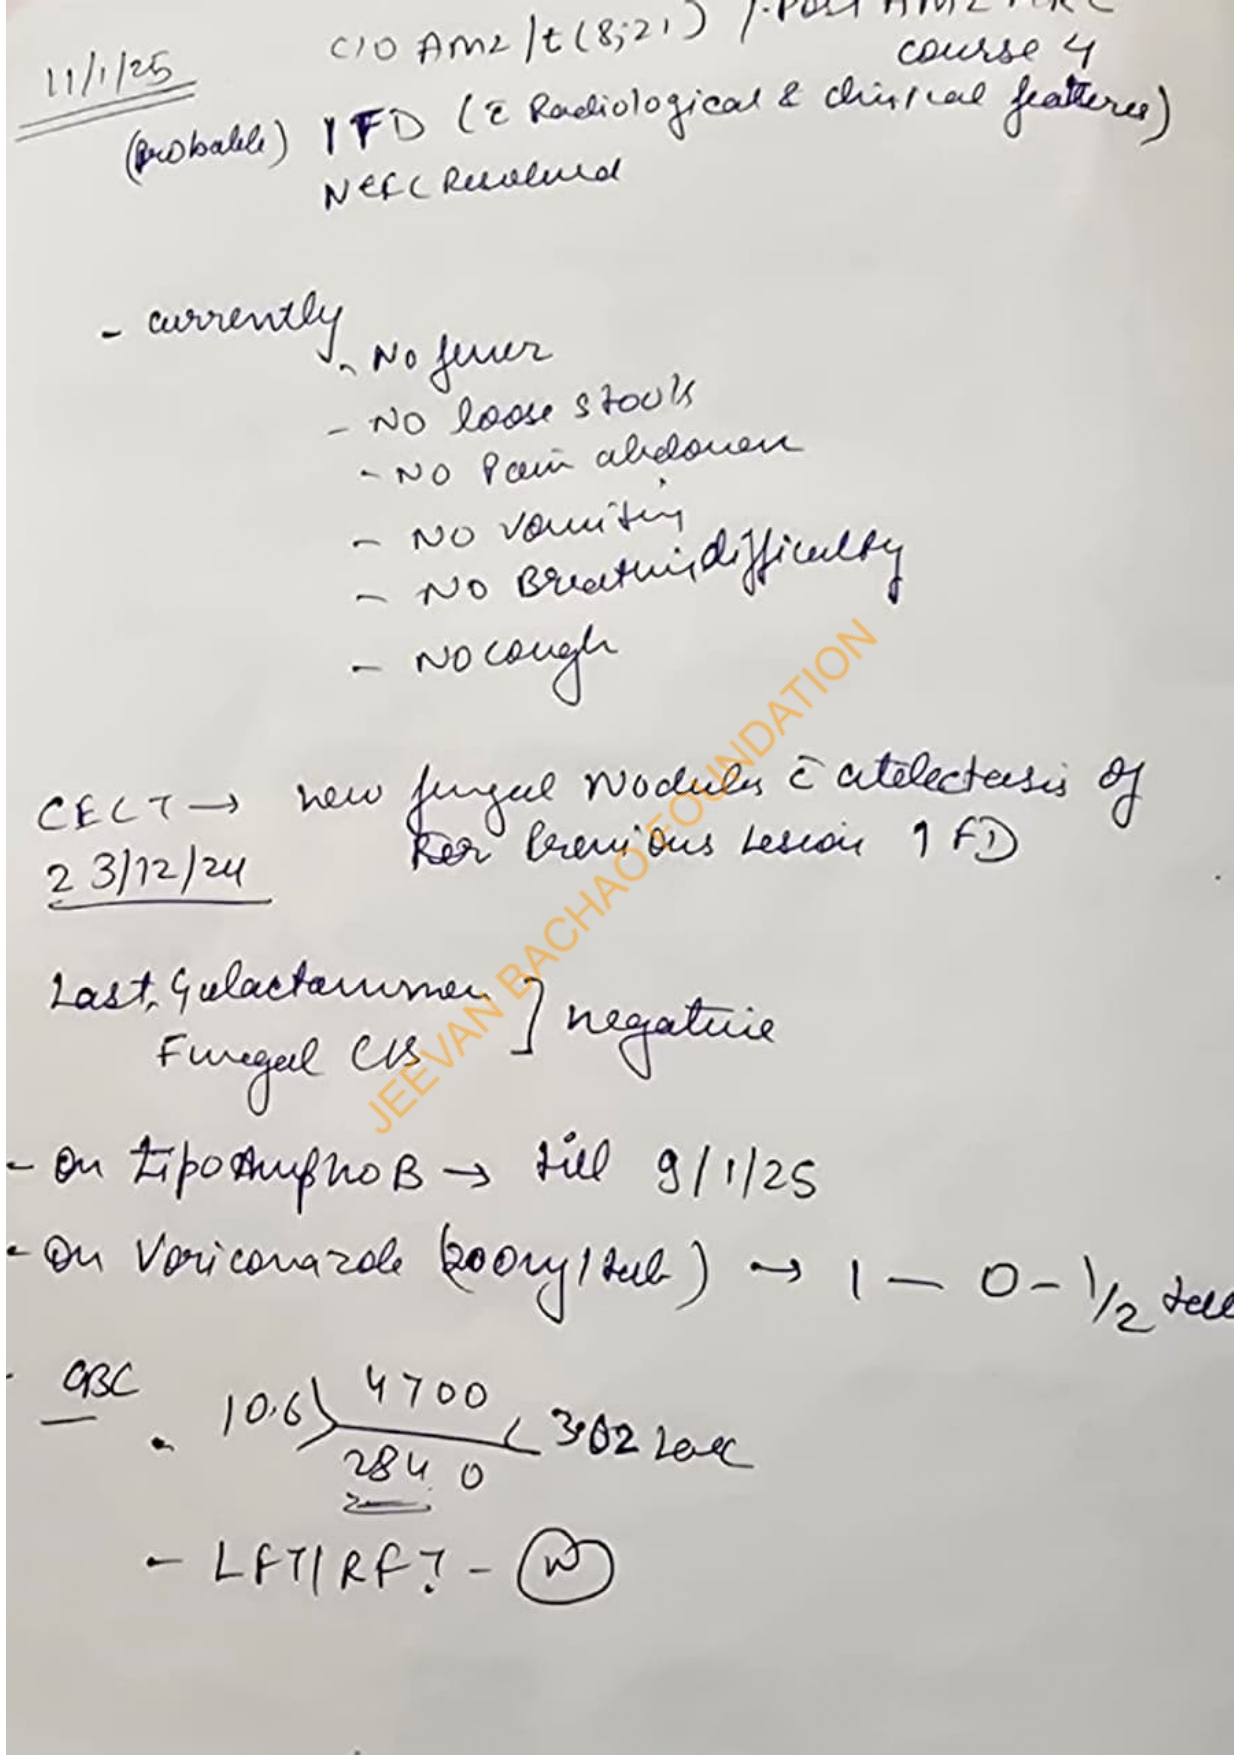 11/1/25
C/O AML / t(8;21) / Post AML MRC
course 4
(Probable) IFD (c̄ Radiological & clinical features)
NEEC Resolved
- currently
- No fever
- NO loose stools
- NO Pain abdomen
- NO vomiting
- NO Breathing difficulty
- NO cough
CECT → new fungal Nodules c̄ atelectasis of
23/12/24 Previous Lesion IFD
Last, Galactomannan ] negative
Fungal C/S
- On LipoAmphoB → till 9/1/25
- On Voriconazole (200mg/tab) → 1 — 0 - 1/2
- CBC
10.6 ) 4700 ( 3.02 Lac
2840
- LFT/RFT - (N)
JEEVAN BACHAO FOUNDATION